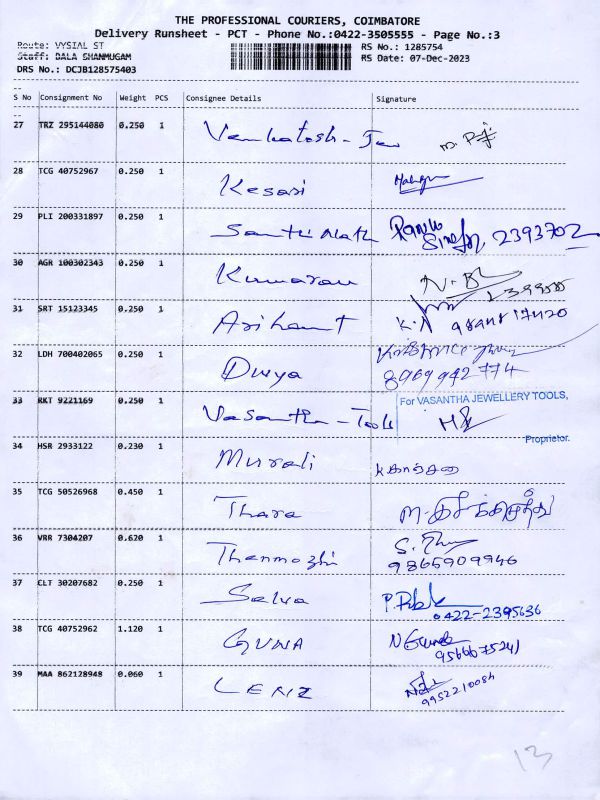 THE PROFESSIONAL COURIERS, COIMBATORE
Delivery Runsheet - PCT - Phone No.:0422-3505555 - Page No.:3
Route: VYSIAL ST
Staff: BALA SHANMUGAM
DRS No.: DCJB128575403
RS No.: 1285754
RS Date: 07-Dec-2023
S No Consignment No Weight PCS Consignee Details Signature
27 TRZ 295144080 0.250 1 Venkatesh - Jew
28 TCG 40752967 0.250 1 Kesari
29 PLI 200331897 0.250 1 Santhi Nath 2393702
30 AGR 100302343 0.250 1 Kumaran
31 SRT 15123345 0.250 1 Arihant K.A
32 LDH 700402065 0.250 1 Divya
8969942774
33 RKT 9221169 0.250 1 Vasantha - Tools For VASANTHA JEWELLERY TOOLS,
Proprietor.
34 HSR 2933122 0.230 1 Murali
35 TCG 50526968 0.450 1 Thara
36 VRR 7304207 0.620 1 Thenmozhi
9865909946
37 CLT 30207682 0.250 1 Selva
0422-2395636
38 TCG 40752962 1.120 1 GUNA
9566675241
39 MAA 862128948 0.060 1
9952210084
13